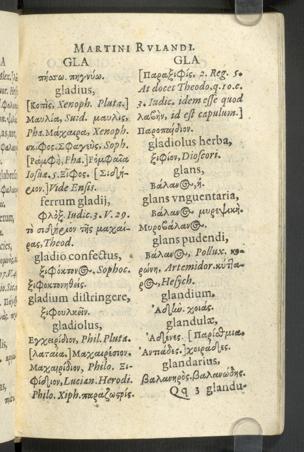 MARTINI RVLANDI.
GLA
πήσσω. πηγνύω.
gladius,
[Κοπὶς. Xenoph. Pluta.]
Μαυλία, Suid. μαυλις.
Pha. Μάχαιρα, Xenoph.
Σφαγεὺς, Soph.
[Ῥομφὴ, Pha.] Ῥομφαῖα
Iosua. 5. Ξίφος. [Σιδή-
ριον.] Vide Ensis.
ferrum gladij,
Φλὸξ. Iudic. 3. V. 29.
τὸ σιδήριον τῆς μαχαί-
ρας. Theod.
gladio confectus,
ξιφόκτονος, Sophoc.
ξιφοκτονηθείς.
gladium distringere,
ξιφουλκεῖν.
gladiolus,
Εγχειρίδιον, Phil. Pluta.
Μαχαίριον.
Μαχαιρίδιον, Philo. Ξι-
φίδιον, Lucian. Herodi.
Philo. Xiph.
GLA
[Παραξιφὶς. 2. Reg. 5.
At docet Theodo. q. 10. c.
3. Iudic. idem esse quod
λαβὴν, id est capulum.]
gladiolus herba,
ξιφίον, Dioscori.
glans,
Βάλανος, ἡ.
glans vnguentaria,
Βάλανος μυρεψικὴ.
Μυροβάλανος.
glans pudendi,
Βάλανος, Pollux. κο-
ρώνη. Artemidor. κύτλα-
ρος, Hesych.
glandium,
Ἀδὴν. χοιράς.
glandulæ,
Ἀδένες. [Παρίσθμια.
Ἀντιάδες.] χοιράδες.
glandarius,
Βαλανηρὸς. βαλανώδης.
Qq 3 glandu-